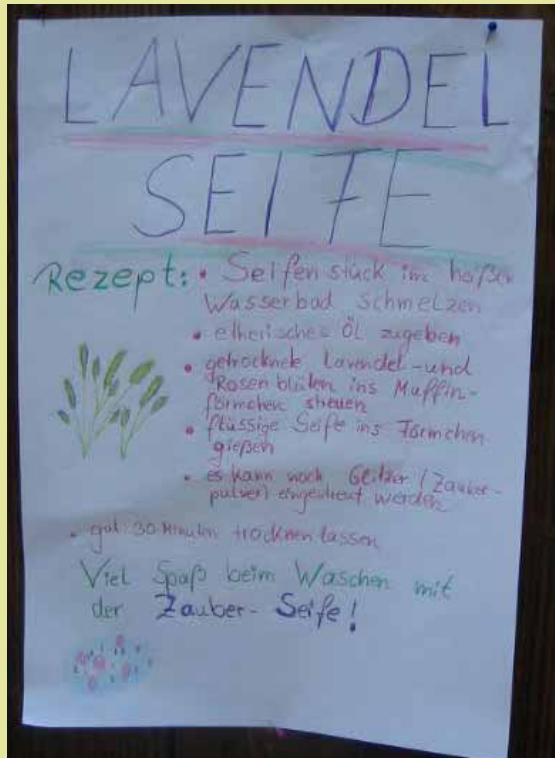 LAVENDEL
SEIFE
Rezept: • Seifenstück im heißen
Wasserbad schmelzen
• etherisches Öl zugeben
• getrocknete Lavendel-und
Rosenblüten ins Muffin-
förmchen streuen
• flüssige Seife ins Förmchen
gießen
• es kann noch Glitzer (Zauber-
pulver) eingestreut werden
• gut 30 Minuten trocknen lassen
Viel Spaß beim Waschen mit
der Zauber-Seife!